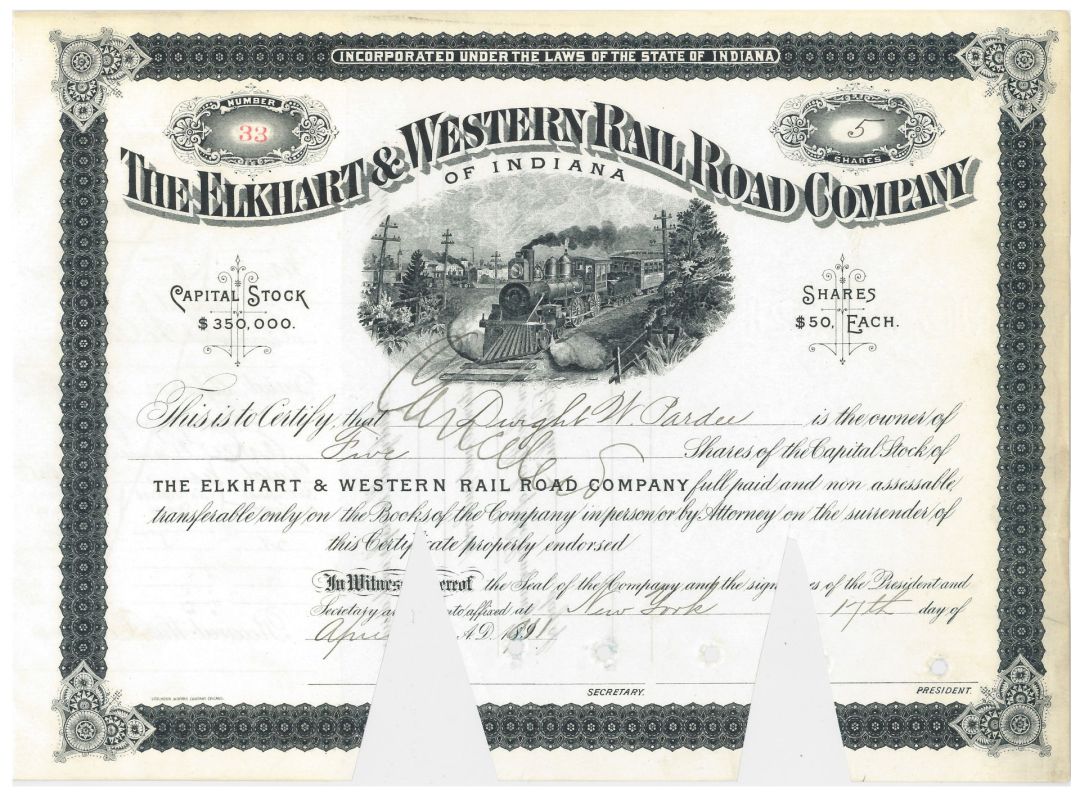 INCORPORATED UNDER THE LAWS OF THE STATE OF INDIANA
NUMBER
33
5
SHARES
THE ELKHART & WESTERN RAIL ROAD COMPANY
OF INDIANA
CAPITAL STOCK
$350,000.
SHARES
$50, EACH.
This is to Certify that Dwight W. Pardee is the owner of
Five Shares of the Capital Stock of
Cancelled
THE ELKHART & WESTERN RAIL ROAD COMPANY full paid and non assessable
transferable only on the Books of the Company in person or by Attorney on the surrender of
this Certi ate properly endorsed
In Witnes ereof the Seal of the Company and the sign es of the President and
Secretary a to affixed at New York 17th day of
Apri A.D. 
SECRETARY.
PRESIDENT.